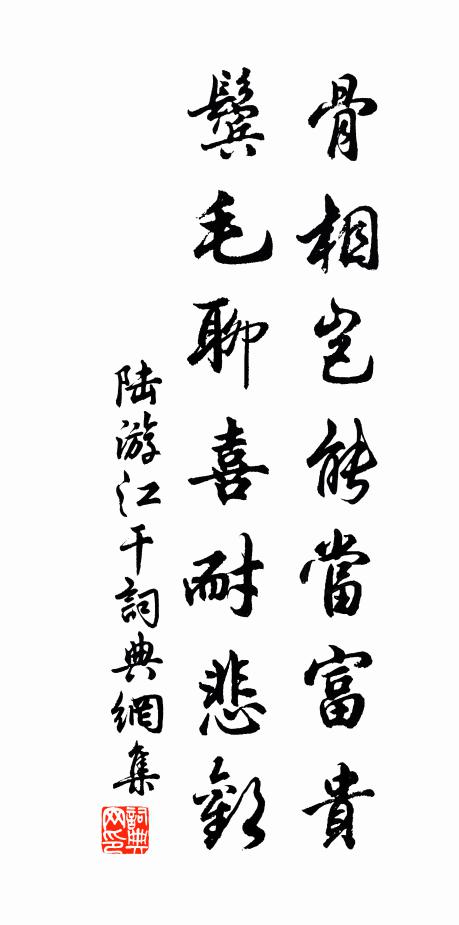 骨相豈能當富貴
鬢毛聊喜耐悲歡
陆游江干詞典網集
詞典網印